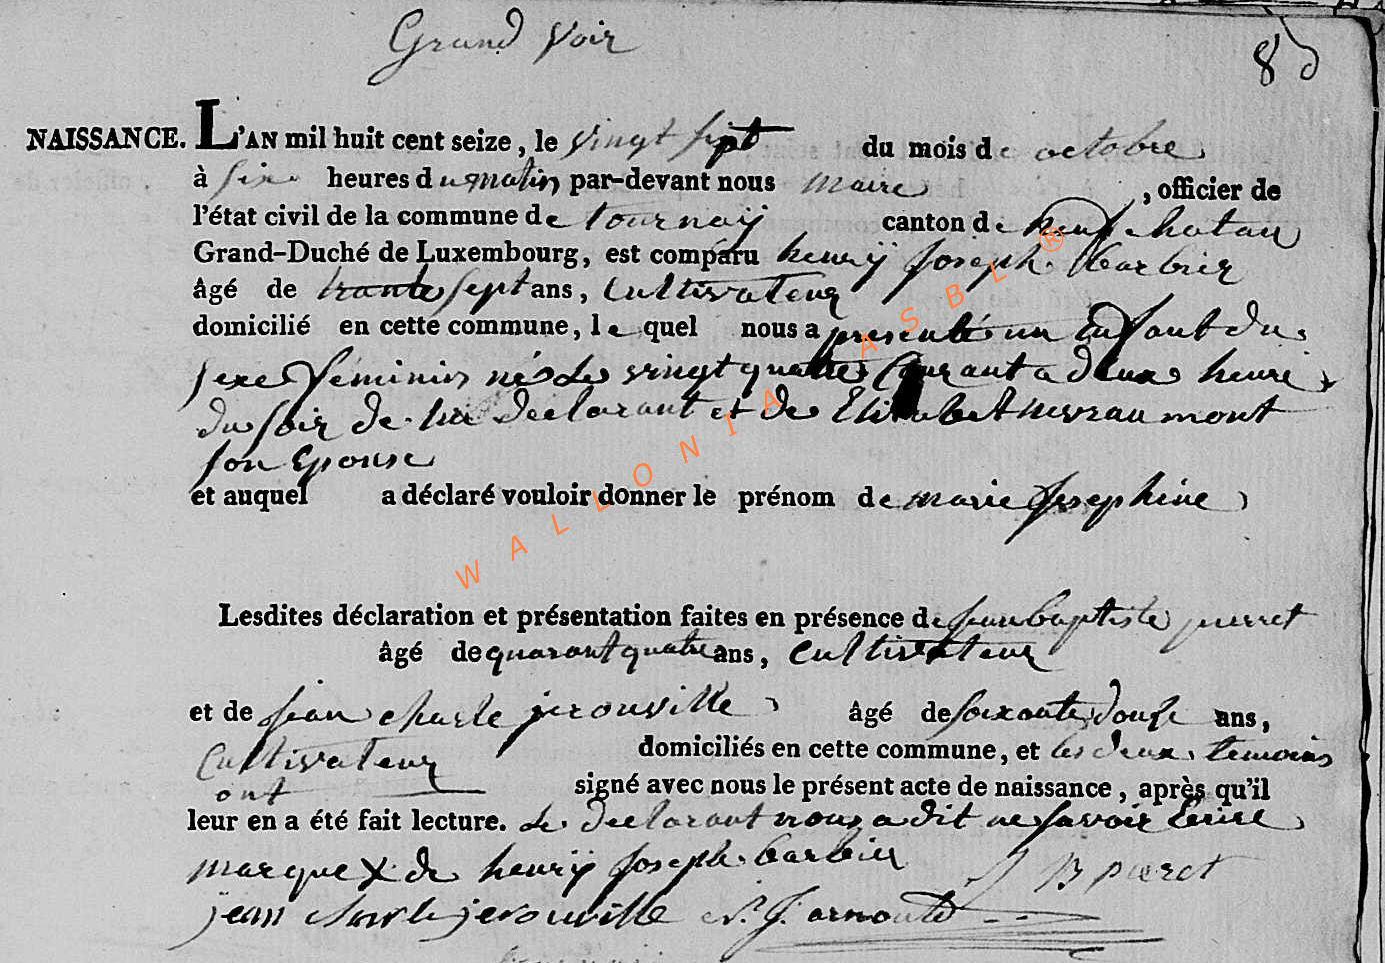 Grand Voir
80
NAISSANCE. L'AN mil huit cent seize, le vingt sept du mois de octobre
à six heures du matin par-devant nous maire , officier de
l'état civil de la commune de tournaÿ canton de neufchatau
Grand-Duché de Luxembourg, est comparu henrÿ Joseph Barbier
âgé de trante sept ans, Cultivateur
domicilié en cette commune, le quel nous a presenté un Enfant du
sexe féminin né le vingt quatre Courant a deux heure
du soir de lui declarant et de Elisabet nevraumont
son Epouse
et auquel a déclaré vouloir donner le prénom de marie Josephine
Lesdites déclaration et présentation faites en présence de jean baptiste pierret
âgé de quarant quatre ans, Cultivateur
et de jean charle jerouville âgé de soixante douse ans,
Cultivateur domiciliés en cette commune, et les deux temoins
ont signé avec nous le présent acte de naissance, après qu'il
leur en a été fait lecture. Le declarant nous a dit ne savoir Ecrire
marque X de henrÿ Joseph Barbier J B pieret
jean charle jerouville J. arnould
WALLONIA ASBL ®